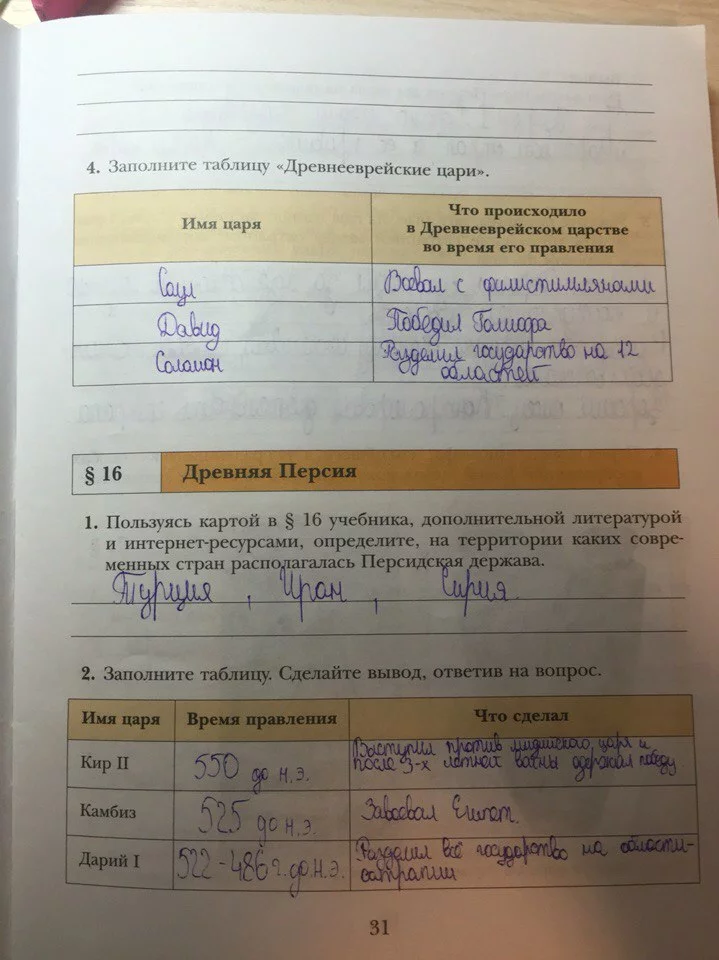 4. Заполните таблицу «Древнееврейские цари».
Имя царя
Что происходило
в Древнееврейском царстве
во время его правления
Саул
Воевал с филистимлянами
Давид
Победил Голиафа
Соломон
Разделил государство на 12
областей
§ 16
Древняя Персия
1. Пользуясь картой в § 16 учебника, дополнительной литературой
и интернет-ресурсами, определите, на территории каких совре-
менных стран располагалась Персидская держава.
Турция , Иран , Сирия.
2. Заполните таблицу. Сделайте вывод, ответив на вопрос.
Имя царя
Время правления
Что сделал
Кир II
550 до н.э.
Выступил против мидийского царя и
после 3-х летней войны одержал победу
Камбиз
525 до н.э.
Завоевал Египет.
Дарий I
522-486 г. до н.э.
Разделил всё государство на области-
сатрапии
31